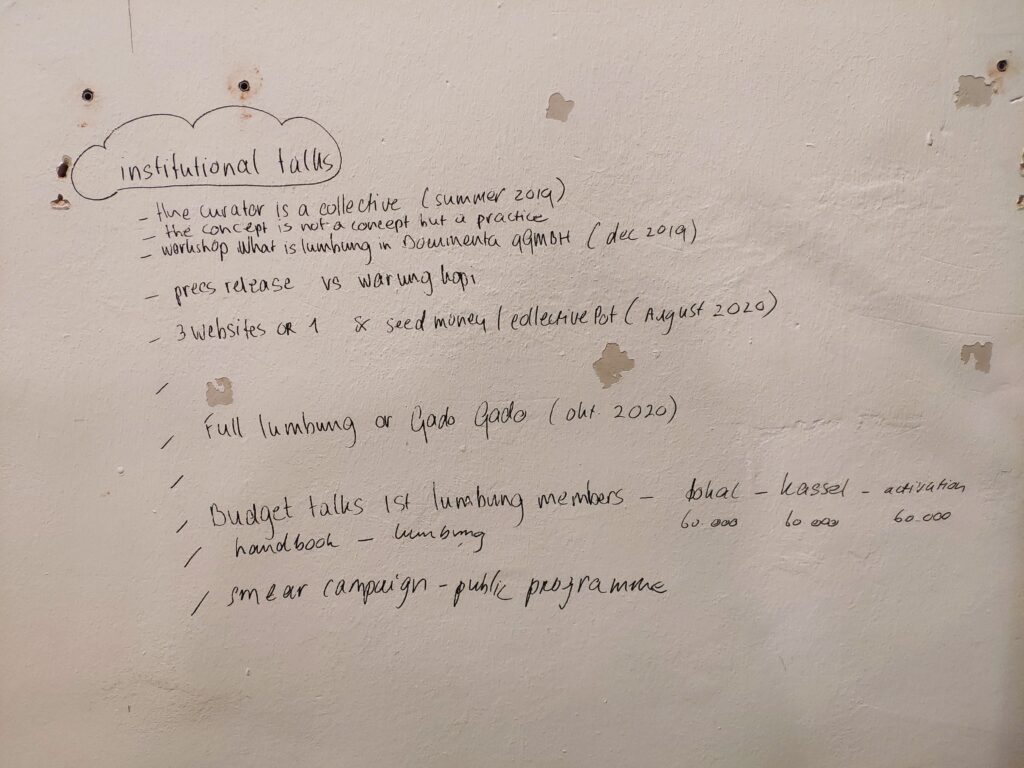 institutional talks
- the curator is a collective (summer 2019)
- the concept is not a concept but a practice
- workshop what is lumbung in Documenta gGMBH (dec 2019)
- press release vs warung kopi
- 3 websites or 1 & seed money / collective Pot (August 2020)
/
/ Full lumbung or Gado Gado (okt. 2020)
/
/ Budget talks 1st lumbung members - lokal - kassel - activation
60.000 60.000 60.000
/ handbook - lumbung
/ smear campaign - public programme